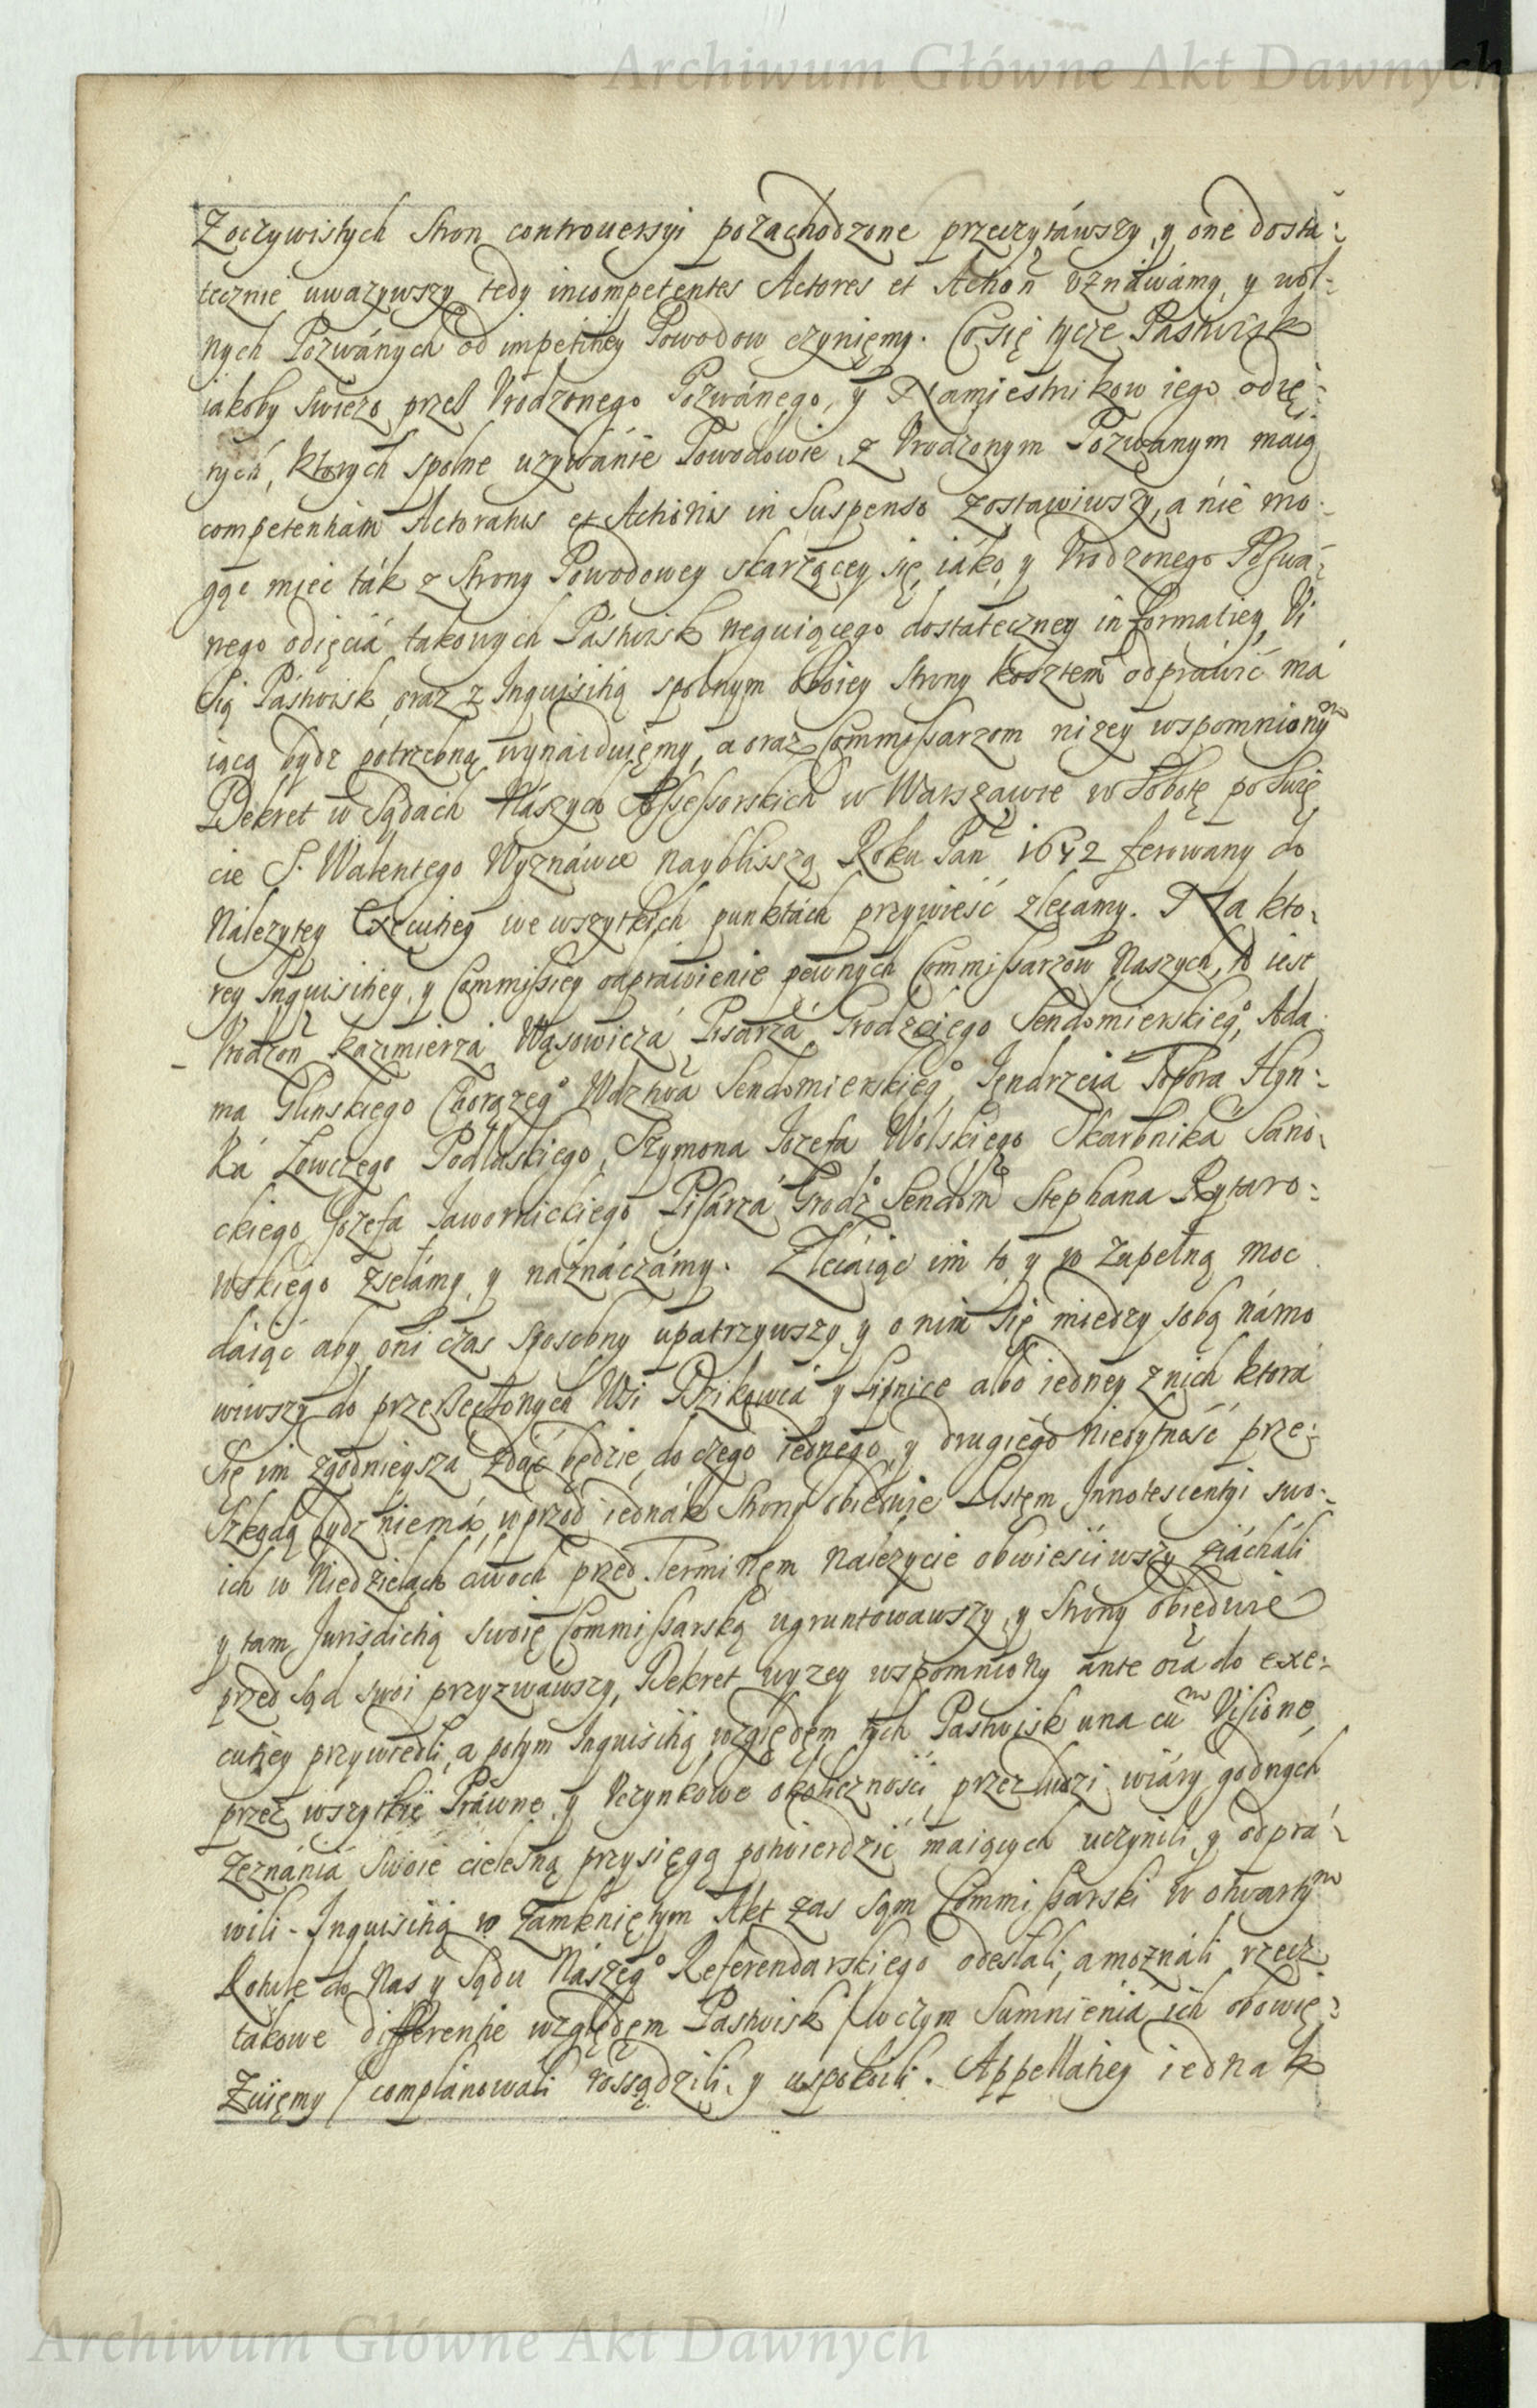 Archiwum Główne Akt Dawnych
Zoczywistych Stron controuersyi pozachodzone przeczytáwszy, y one dosta:
tecznie uwazywszy, tedy incompetentes Actores et Action̄ vznáwámy, y wol:
nych Pozwánych od impetitiey Powodow czyniemy. Co się tycze Pastwisk
iakoby swiezo przez Vrodzonego Pozwánego, y Namiestnikow iego odię:
tych, ktorych spolne uzywánie Powodowie z Vrodzonym Pozwanym maią
competentiam Actoratus et Actionis in Suspenso zostawiwszy, a nie mo:
gąc mieć ták z Strony Powodowey skarżącey się, iáko y Vrodzonego Poswá:
nego odięciá takowych Pástwisk neguiącego dostateczney informatiey, Vi
Sią Pástwisk oraz z Inquisitią spolnym oboiey Strony kosztem odpráwić má
iącą bydz potrzebną wynaiduięmy, a oraz Commissarzom nizey wspomnionyͫ
Dekret w Sądach Nászych Assessorskich w Warszawie w Sobotę po Swię
cie S. Walentego Wyznáwce naybliszą Roku Pan̄ 1672 ferowany do
Nalezytey Executiey we wszytkich punktách przywieść zlecamy. Na kto:
rey Inquisitiey, y Commissiey odpráwienie pewnych Commissarzow Naszych, to iest
Vrodzon̄ Kazimierzá Wąsowiczá Pisarzá Grodzkiego Sendomierskieg°, Ada
ma Glinskiego Chorązeg° Wdztwa Sendomierskieg°, Jędrzeia Topora Hyn:
ká Łowczego Podlaskiego, Szymona Jozefa Wolskiego Skarbniká Sano:
ckiego, Jozefa Jawornickiego Pisárzá Grodz° Sendom̄ Stephána Rytaro:
wskiego zsełámy, y náznáczámy. Zlecáiąc im to y w zupełną moc
daiąc aby oni czas sposobny upatrzywszy, y o nim się miedzy sobą námo
wiwszy do przerzeczonych Wsi Dzikowca y Lipnice albo iedney z nich ktora
Się im zgodnieysza zdáć będzie, do czego iednego, y drugiego niebytność prze:
Szkodą bydz niemá, wprzod iednák Strony obiedwie Listem Innotescentyi swo:
ich w Niedzielach dwoch przed Terminęm nalezycie obwieściwszy ziácháli
y tam Jurisdictią swoię Commissarską ugruntowawszy, y Strony obiedwie
przed Sąd swoi przyzwawszy, Dekret wyzey wspomniony ante oia do exe:
cutiey przywiedli, a potym Inquisitią względem tych Pastwisk una cuͫ Visione
przez wszytkie Práwne, y Vczynkowe okoliczności, przez ludzi wiáry godnych
Zeznániá Swoie cielesną przysięgą potwierdzić maiących uczynili, y odprá:
wili. Inquisitią w zamknietym Akt zas sąm Commissarski w otwartyͫ
Rotule do Nas y Sądu Nászeg° Referendarskiego odesłali, a moználi rzecz
tákowe differentie względęm Pastwisk / w czym Sumnienia ich obowię:
Zuięmy / complanowali rossądzili, y uspokoili. Appellatiey iednak
Archiwum Główne Akt Dawnych